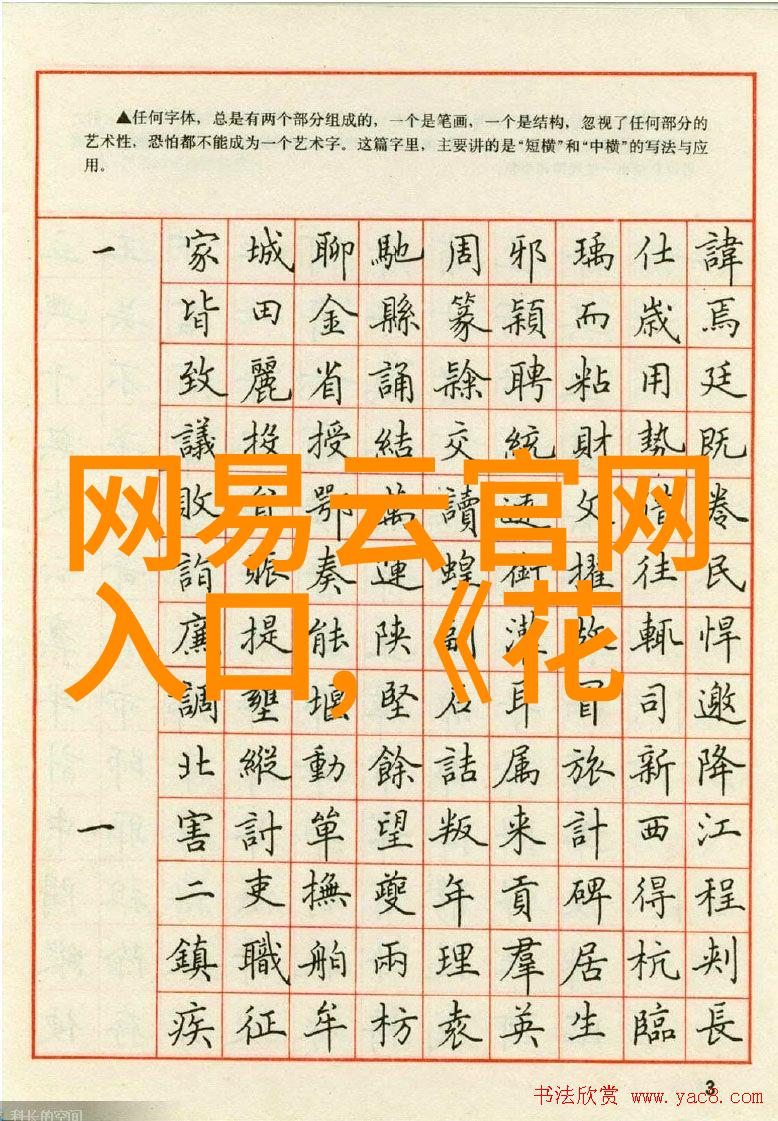 ▲任何字体，总是有两个部分组成的，一个是笔画，一个是结构，忽视了任何部分的
艺术性，恐怕都不能成为一个艺术字。这篇字里，主要讲的是“短横”和“中横”的写法与应
用。
一 家城聊馳周邪瑀仕諱
皆田金縣篆穎而歲焉
致麗省誦隸聘粘用廷
議投授結交統財勢既
敗鄂萬讀文惜卷
詣賑奏連蝗銜擢往民
廉提能陝漕故輒悍
調壅堰堅石耳冒司邀
北縱動餘詰属旅新降
一 害討单望叛来計西江
二吏撫夔年貢碑得程
鎮職舶兩理羣居杭刺
疾征牟枋袁英生臨長
网易云官网
入口，《花
3
书法欣赏 www.yac8.com
科长的空间